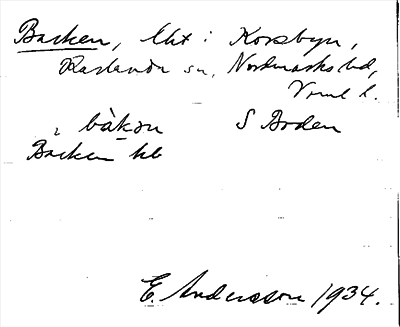 Backen, lht i Korsbyn,
Karlanda sn, Nordmarks hd,
Vrml l.
ɩ bàkən S Boden
Backen hb
E. Andersson 1934.